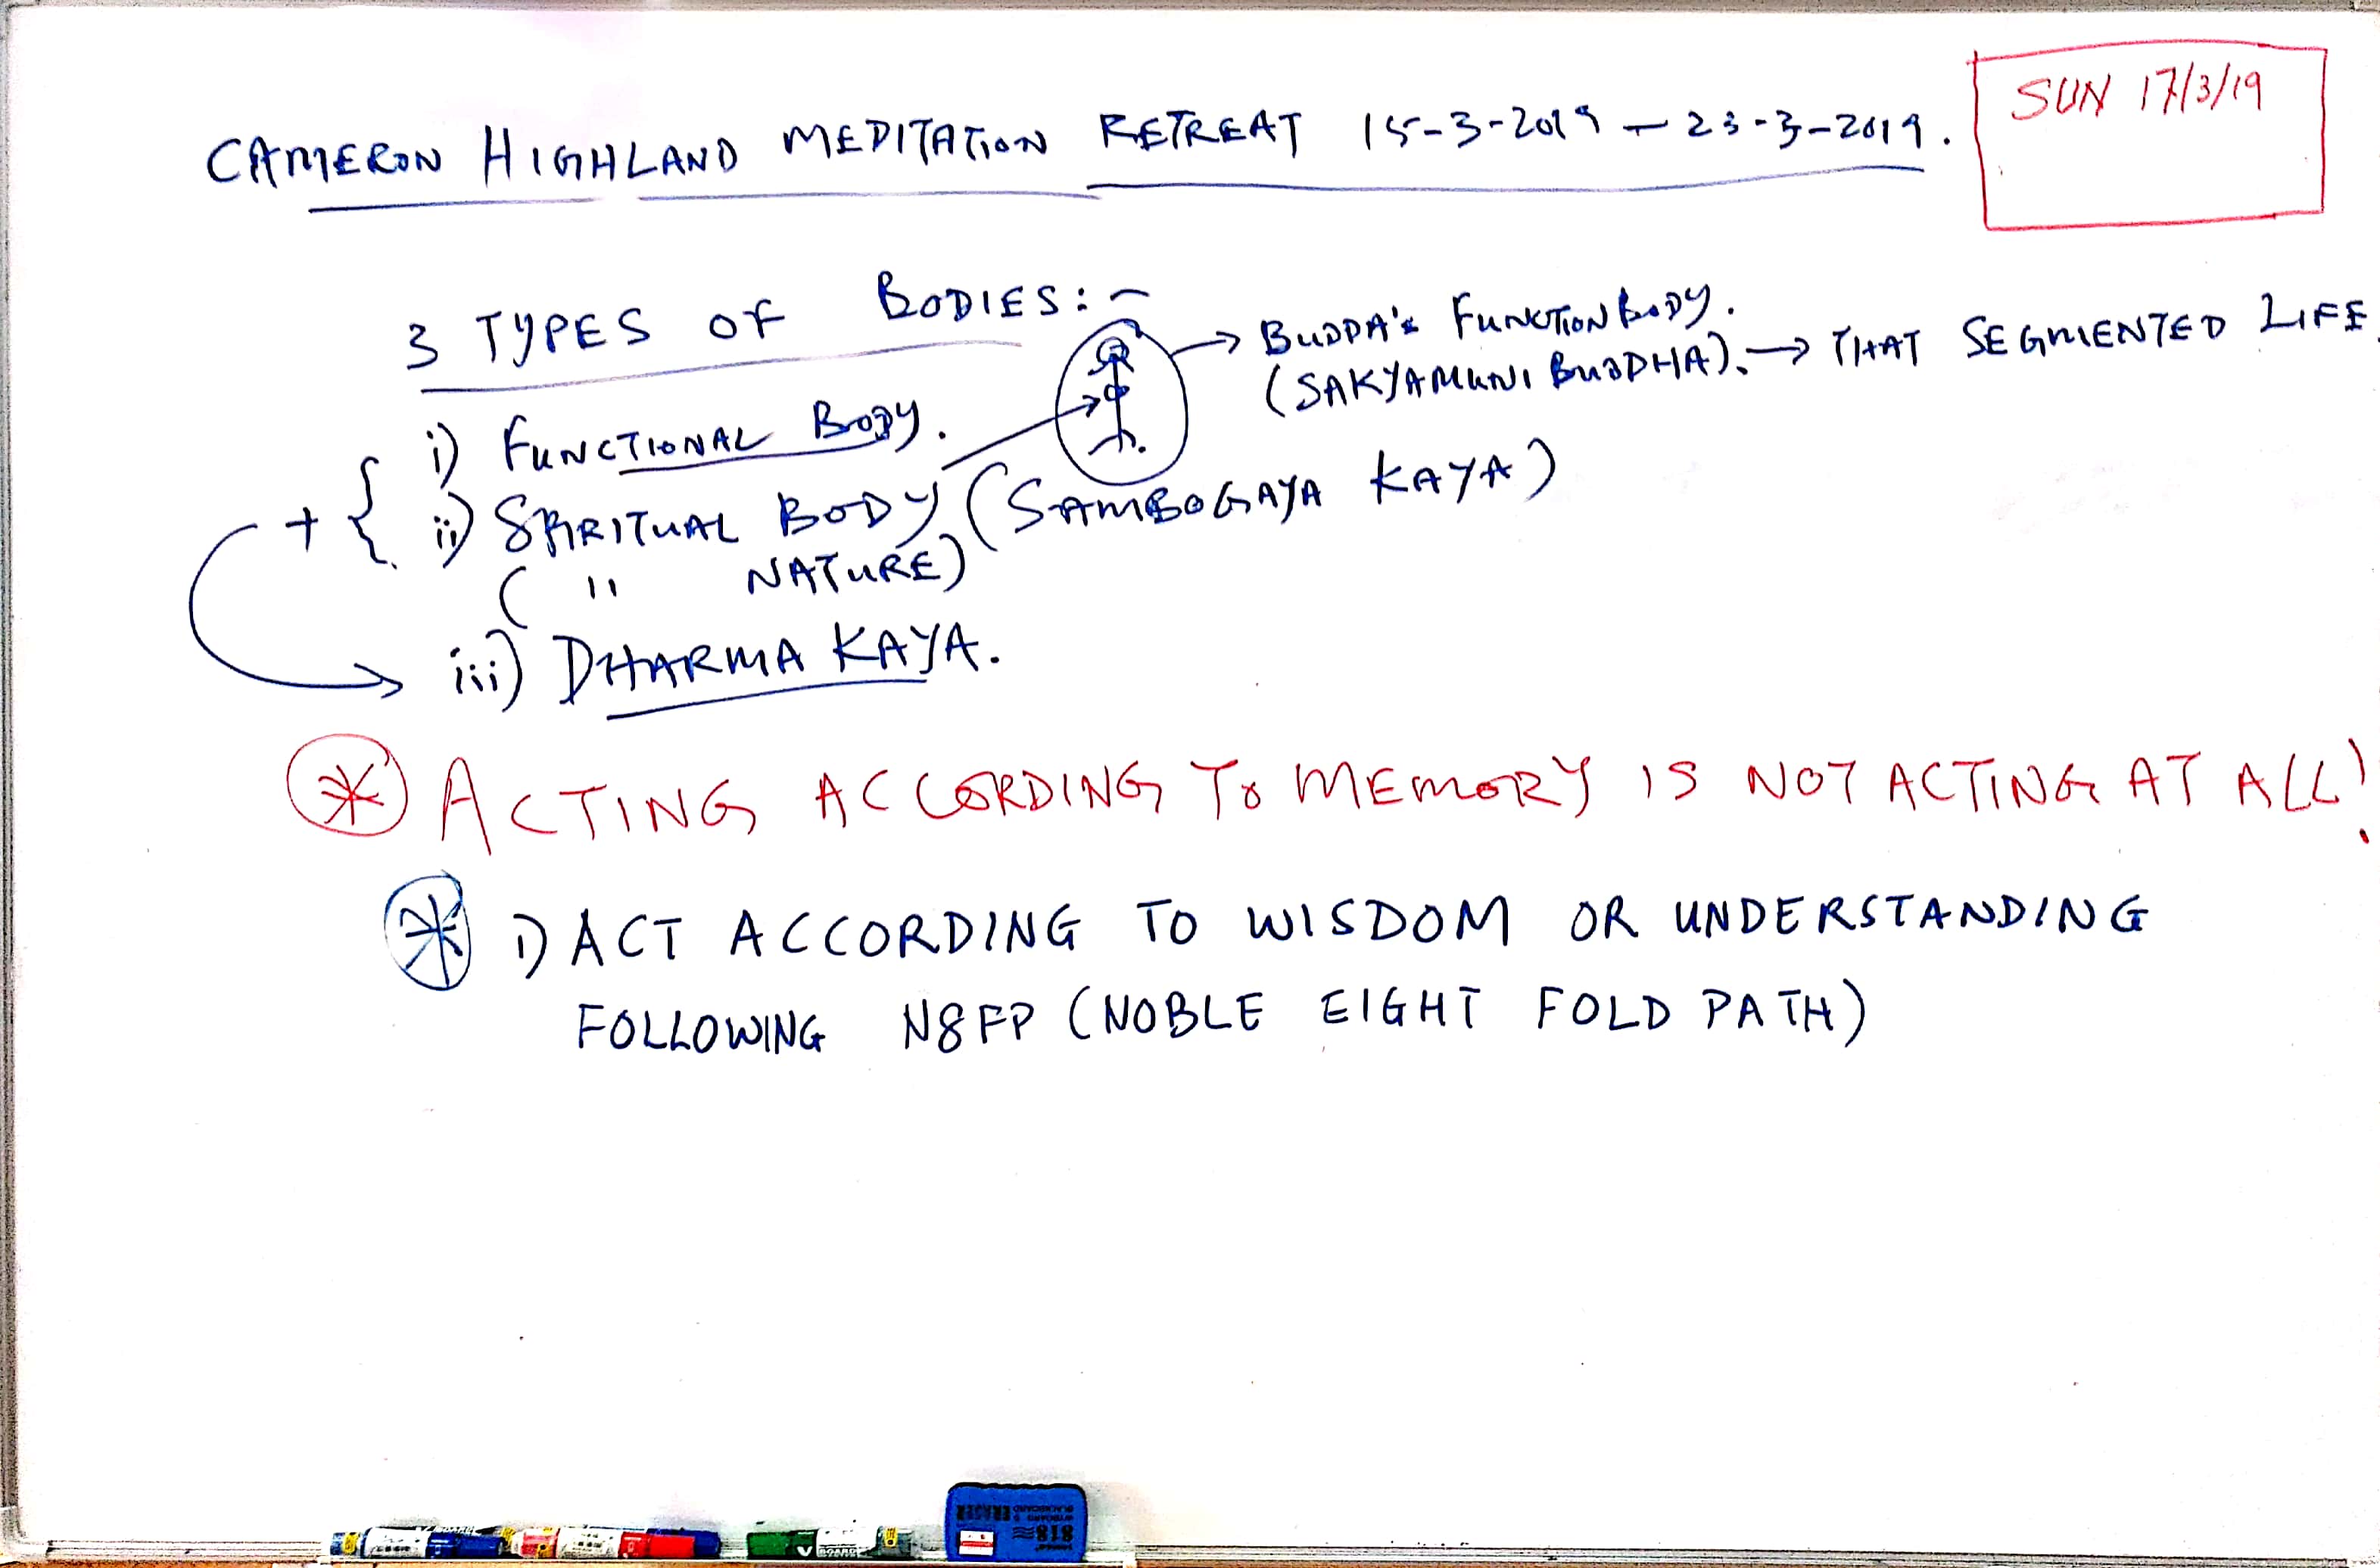 CAMERON HIGHLAND MEDITATION RETREAT 15-3-2019 — 23-3-2019.
SUN 17/3/19
3 TYPES OF BODIES:-
→ BUDDA's FUNCTION BODY.
(SAKYAMUNI BUDDHA). → THAT SEGMENTED LIFE
i) FUNCTIONAL BODY.
+ { ii) SPIRITUAL BODY (SAMBOGAYA KAYA)
( " NATURE)
iii) DHARMA KAYA.
* ACTING ACCORDING TO MEMORY IS NOT ACTING AT ALL!
* 1) ACT ACCORDING TO WISDOM OR UNDERSTANDING
FOLLOWING N8FP (NOBLE EIGHT FOLD PATH)
818